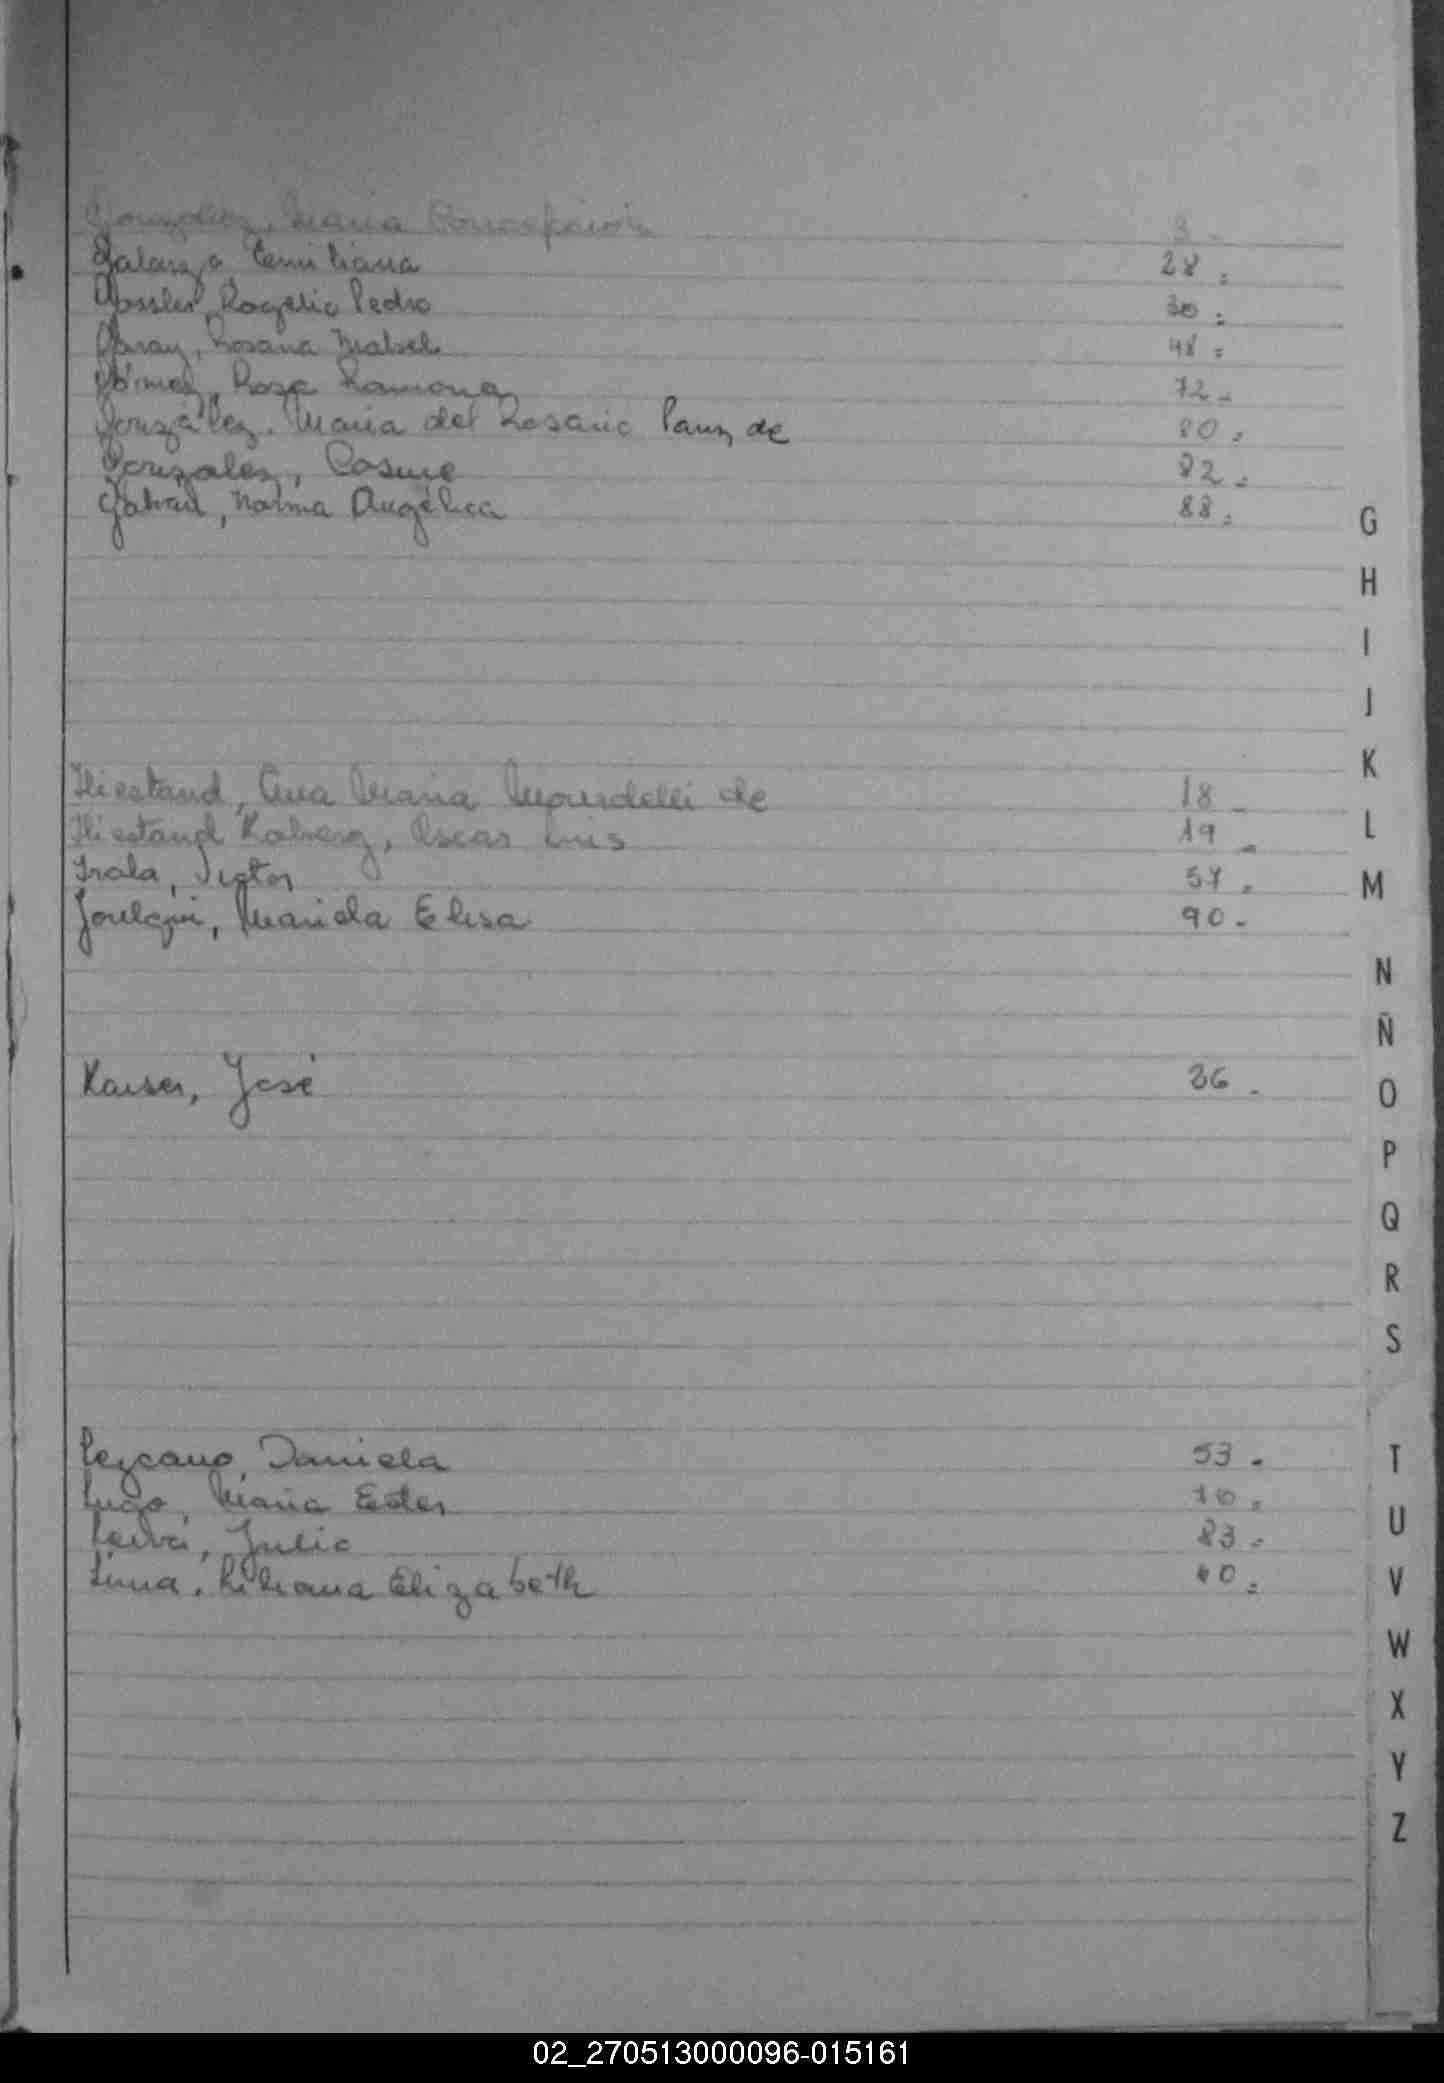 González, Maria Concepción 3 -
Galarza Emiliana 28 =
Gossler, Rogelio Pedro 30 =
Garay, Rosana Mabel 48 =
Gómez, Rosa Ramona 72 -
González, Maria del Rosario de 80 =
Gonzales, Cosme 82 =
Norma Angélica 88 =
G
H
I
J
K
Hiestand, Ana Maria de 18 -
L
Hiestand Oscar Luis 19 =
M
Irala, Victor 57 =
Mariela Elisa 90 -
N
Ñ
Kaiser, José 36 -
O
P
Q
R
S
Lezcano, Daniela 53 -
T
Lugo, Maria Ester 70 =
U
Leiva, Julio 83 =
Lima, Liliana Elizabeth 40 =
V
W
X
Y
Z
02_270513000096-015161